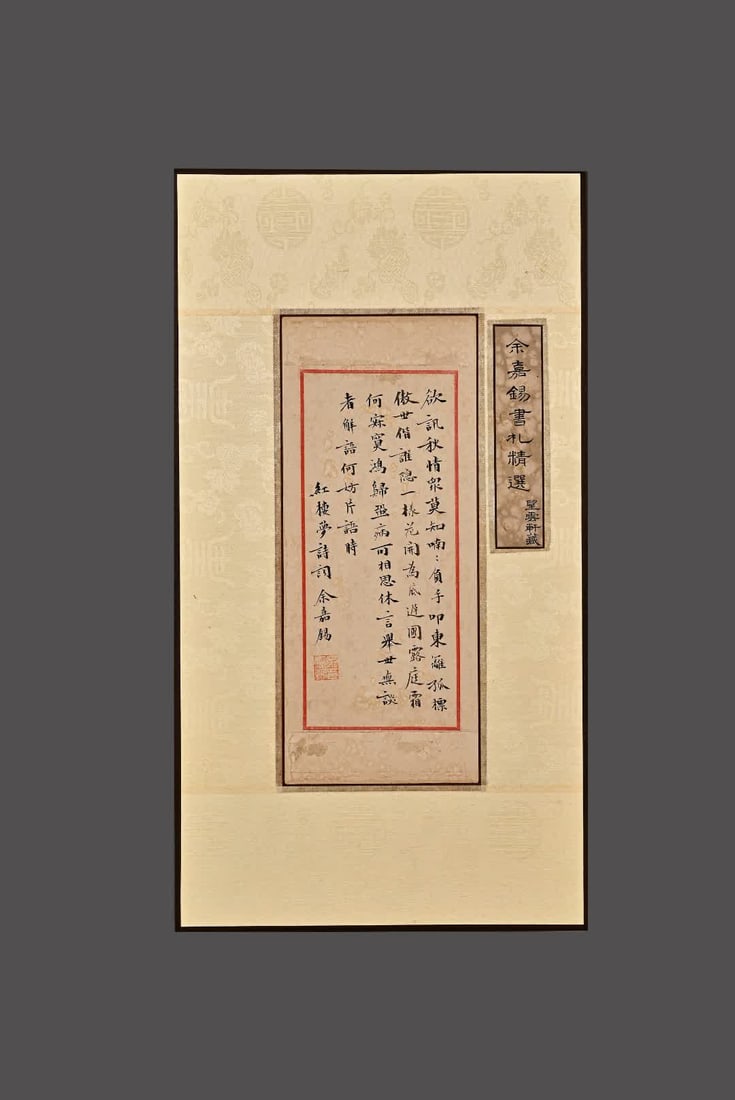 余嘉錫書札精選
星雲軒藏
欲訊秋情眾莫知喃:負手叩東籬孤標
傲世偕誰隱一樣花開為底遲圃露庭霜
何寂寞鴻歸蛩病可相思休言舉世無談
者解語何妨片語時
紅樓夢詩詞 余嘉錫